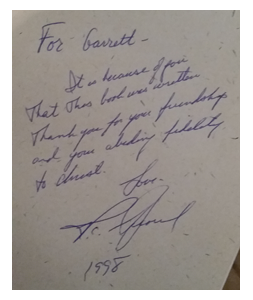 For Garrett -
It is because of you
That This book was written
Thank you for your friendship
and your abiding fidelity
to Christ.
Love,
R.C. Sproul
1998